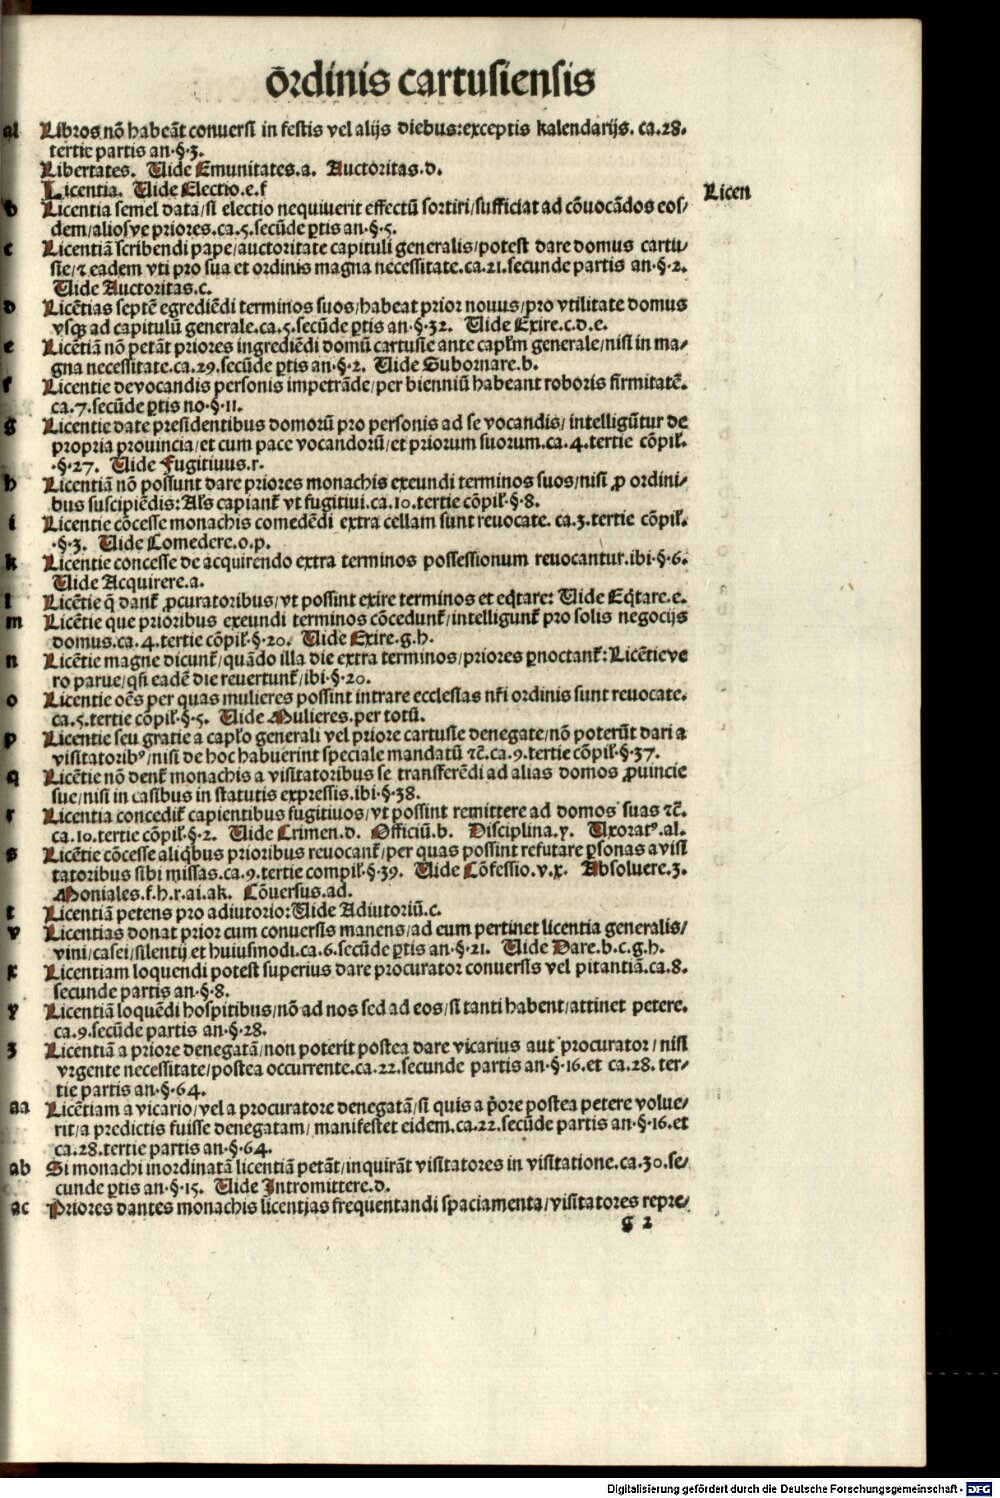 ōrdinis cartusiensis
al Libros nō habeāt conuersi in festis vel alijs diebus: exceptis kalendarijs. ca.28.
tertie partis an.§.3.
Libertates. Uide Emunitates.a. Auctoritas.d.
Licentia. Uide Electio.e.f
Licen
b Licentia semel data/si electio nequiuerit effectū sortiri/sufficiat ad cōuocādos eos/
dem/aliosve priores.ca.5.secūde ꝑtis an.§.5.
c Licentiā scribendi pape/auctoritate capituli generalis/potest dare domus cartu/
sie/⁊ eadem vti pro sua et ordinis magna necessitate.ca.21.secunde partis an.§.2.
Uide Auctoritas.c.
d Licētias septē egrediēdi terminos suos/habeat prior nouus/pro vtilitate domus
vsqꝫ ad capitulū generale.ca.5.secūde ꝑtis an.§.32. Uide Exire.c.d.e.
e Licētiā nō petāt priores ingrediēdi domū cartusie ante capl̄m generale/nisi in ma/
gna necessitate.ca.29.secūde ꝑtis an.§.2. Uide Subornare.b.
f Licentie devocandis personis impetrāde/per bienniū habeant roboris firmitatē.
ca.7.secūde ꝑtis no.§.11.
g Licentie date presidentibus domorū pro personis ad se vocandis/intelligūtur de
propria prouincia/et cum pace vocandorū/et priorum suorum.ca.4.tertie cōpil̄.
.§.27. Uide Fugitiuus.r.
h Licentiā nō possunt dare priores monachis exeundi terminos suos/nisi ꝓ ordini/
bus suscipiēdis: Al̄s capiant᷑ vt fugitiui.ca.10.tertie cōpil̄.§.8.
i Licentie cōcesse monachis comedēdi extra cellam sunt reuocate. ca.3.tertie cōpil̄.
.§.3. Uide Comedere.o.p.
k Licentie concesse de acquirendo extra terminos possessionum reuocantur.ibi.§.6.
Uide Acquirere.a.
l Licētie q̄ dant᷑ ꝓcuratoribus/vt possint exire terminos et eq̄tare: Uide Eq̄tare.e.
m Licētie que prioribus exeundi terminos cōcedunt᷑/intelligunt᷑ pro solis negocijs
domus.ca.4.tertie cōpil̄.§.20. Uide Exire.g.h.
n Licētie magne dicunt᷑/quādo illa die extra terminos/priores ꝑnoctant᷑: Licētie ve
ro parue/qn̄ eadē die reuertunt᷑/ibi.§.20.
o Licentie oēs per quas mulieres possint intrare ecclesias nr̄i ordinis sunt reuocate.
ca.5.tertie cōpil̄.§.5. Uide Mulieres.per totū.
p Licentie seu gratie a capl̄o generali vel priore cartusie denegate/nō poterūt dari a
visitatoribꝰ/nisi de hoc habuerint speciale mandatū ⁊c̄.ca.9.tertie cōpil̄.§.37.
q Licētie nō dent᷑ monachis a visitatoribus se transferēdi ad alias domos ꝓuincie
sue/nisi in casibus in statutis expressis.ibi.§.38.
r Licentia concedit᷑ capientibus fugitiuos/vt possint remittere ad domos suas ⁊c̄.
ca.10.tertie cōpil̄.§.2. Uide Crimen.d. Officiū.b. Disciplina.y. Uxoratꝰ.al.
s Licētie cōcesse aliq̄bus prioribus reuocant᷑/per quas possint refutare ꝑsonas a visi
tatoribus sibi missas.ca.9.tertie compil̄.§.39. Uide Cōfessio.v.x. Absoluere.z.
Moniales.f.h.r.ai.ak. Cōuersus.ad.
t Licentiā petens pro adiutorio: Uide Adiutoriū.c.
v Licentias donat prior cum conuersis manens/ad eum pertinet licentia generalis/
vini/casei/silentij et huiusmodi.ca.6.secūde ꝑtis an.§.21. Uide Dare.b.c.g.h.
x Licentiam loquendi potest superius dare procurator conuersis vel pitantiā.ca.8.
secunde partis an.§.8.
y Licentiā loquēdi hospitibus/nō ad nos sed ad eos/si tanti habent/attinet petere.
ca.9.secūde partis an.§.28.
z Licentiā a priore denegatā/non poterit postea dare vicarius aut procurator/nisi
vrgente necessitate/postea occurrente.ca.22.secunde partis an.§.16.et ca.28. ter/
tie partis an.§.64.
aa Licētiam a vicario/vel a procuratore denegatā/si quis a p̄ore postea petere volue/
rit/a predictis fuisse denegatam/manifestet eidem.ca.22.secūde partis an.§.16.et
ca.28.tertie partis an.§.64.
ab Si monachi inordinatā licentiā petāt/inquirāt visitatores in visitatione.ca.30.se/
cunde ꝑtis an.§.15. Uide Intromittere.d.
ac Priores dantes monachis licentias frequentandi spaciamenta/visitatores repre/
g 2
Digitalisierung gefördert durch die Deutsche Forschungsgemeinschaft - DFG